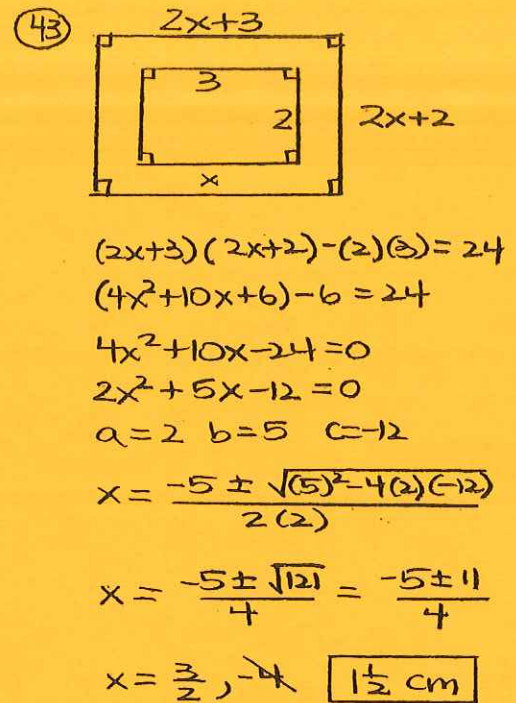 43
2x+3
3
2
2x+2
x
(2x+3)(2x+2)-(2)(3)=24
(4x²+10x+6)-6=24
4x²+10x-24=0
2x²+5x-12=0
a=2 b=5 c=-12
x = (-5 ± √((5)²-4(2)(-12)))/(2(2))
x = (-5±√121)/4 = (-5±11)/4
x = 3/2, -4 1 1/2 cm